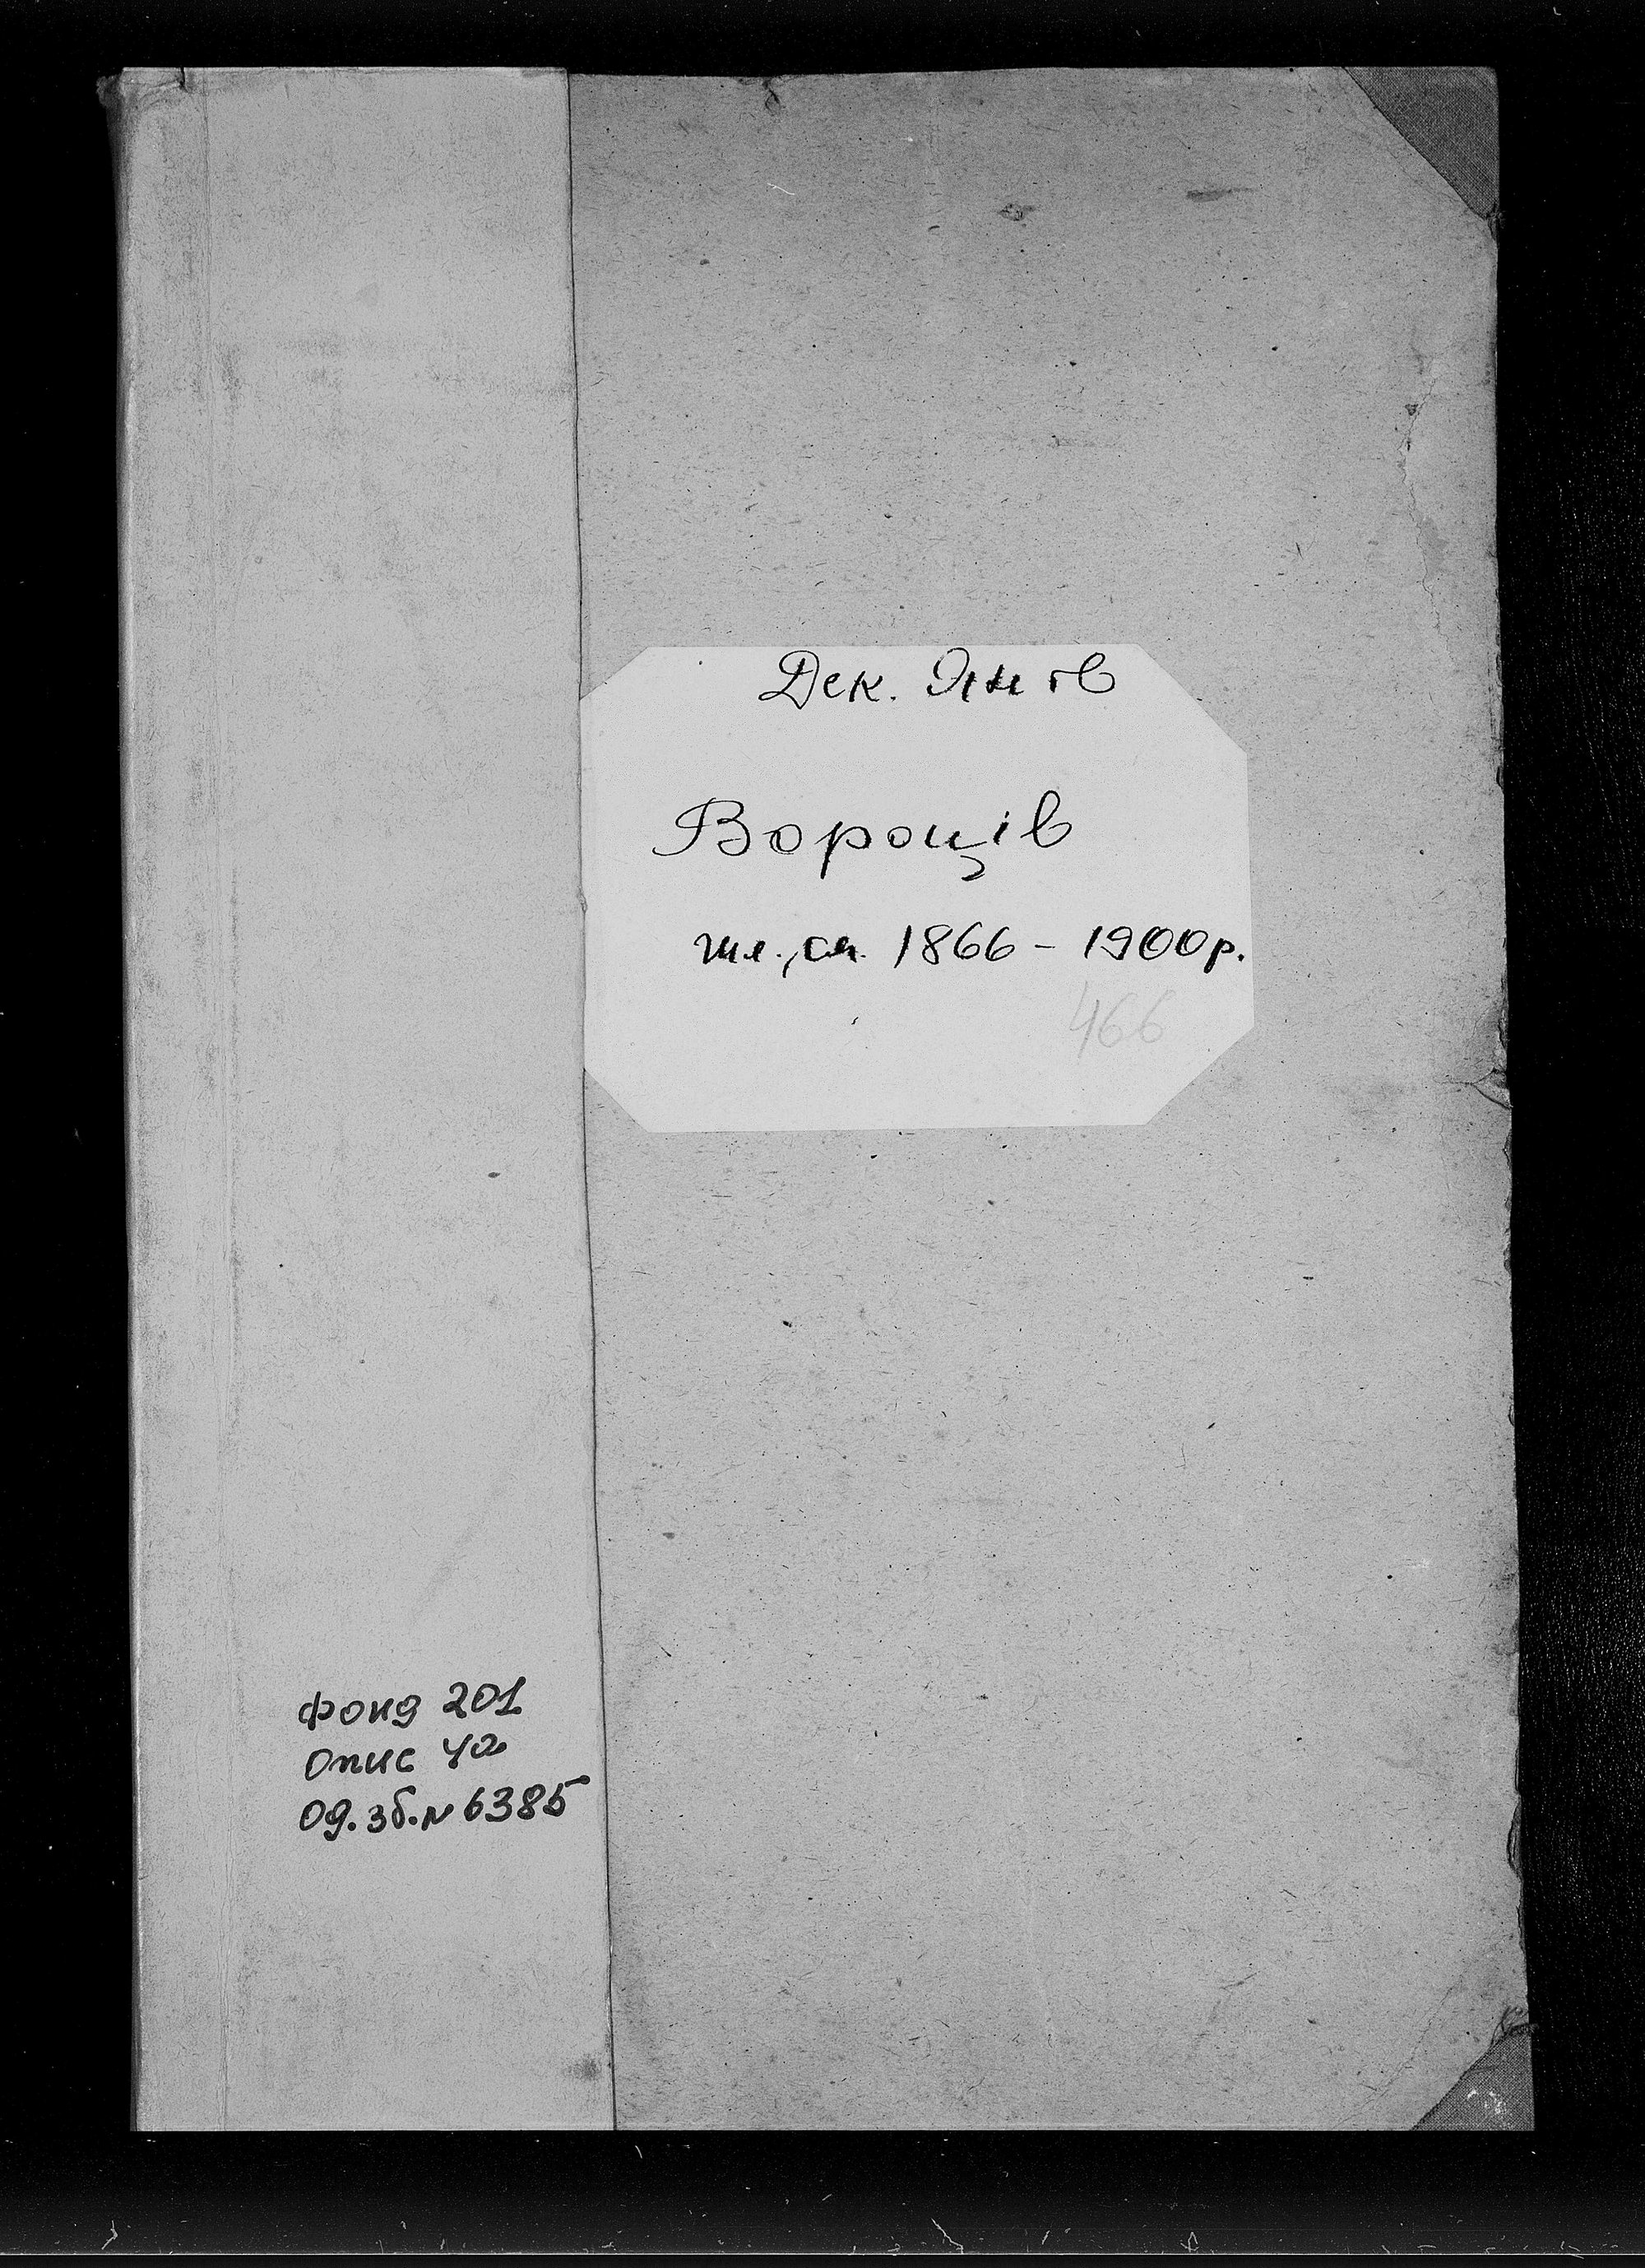 Дек. Янів
Вороців
шл., см. 1866 - 1900 р.
466
Фонд 201
Опис 4а
Од. зб. № 6385